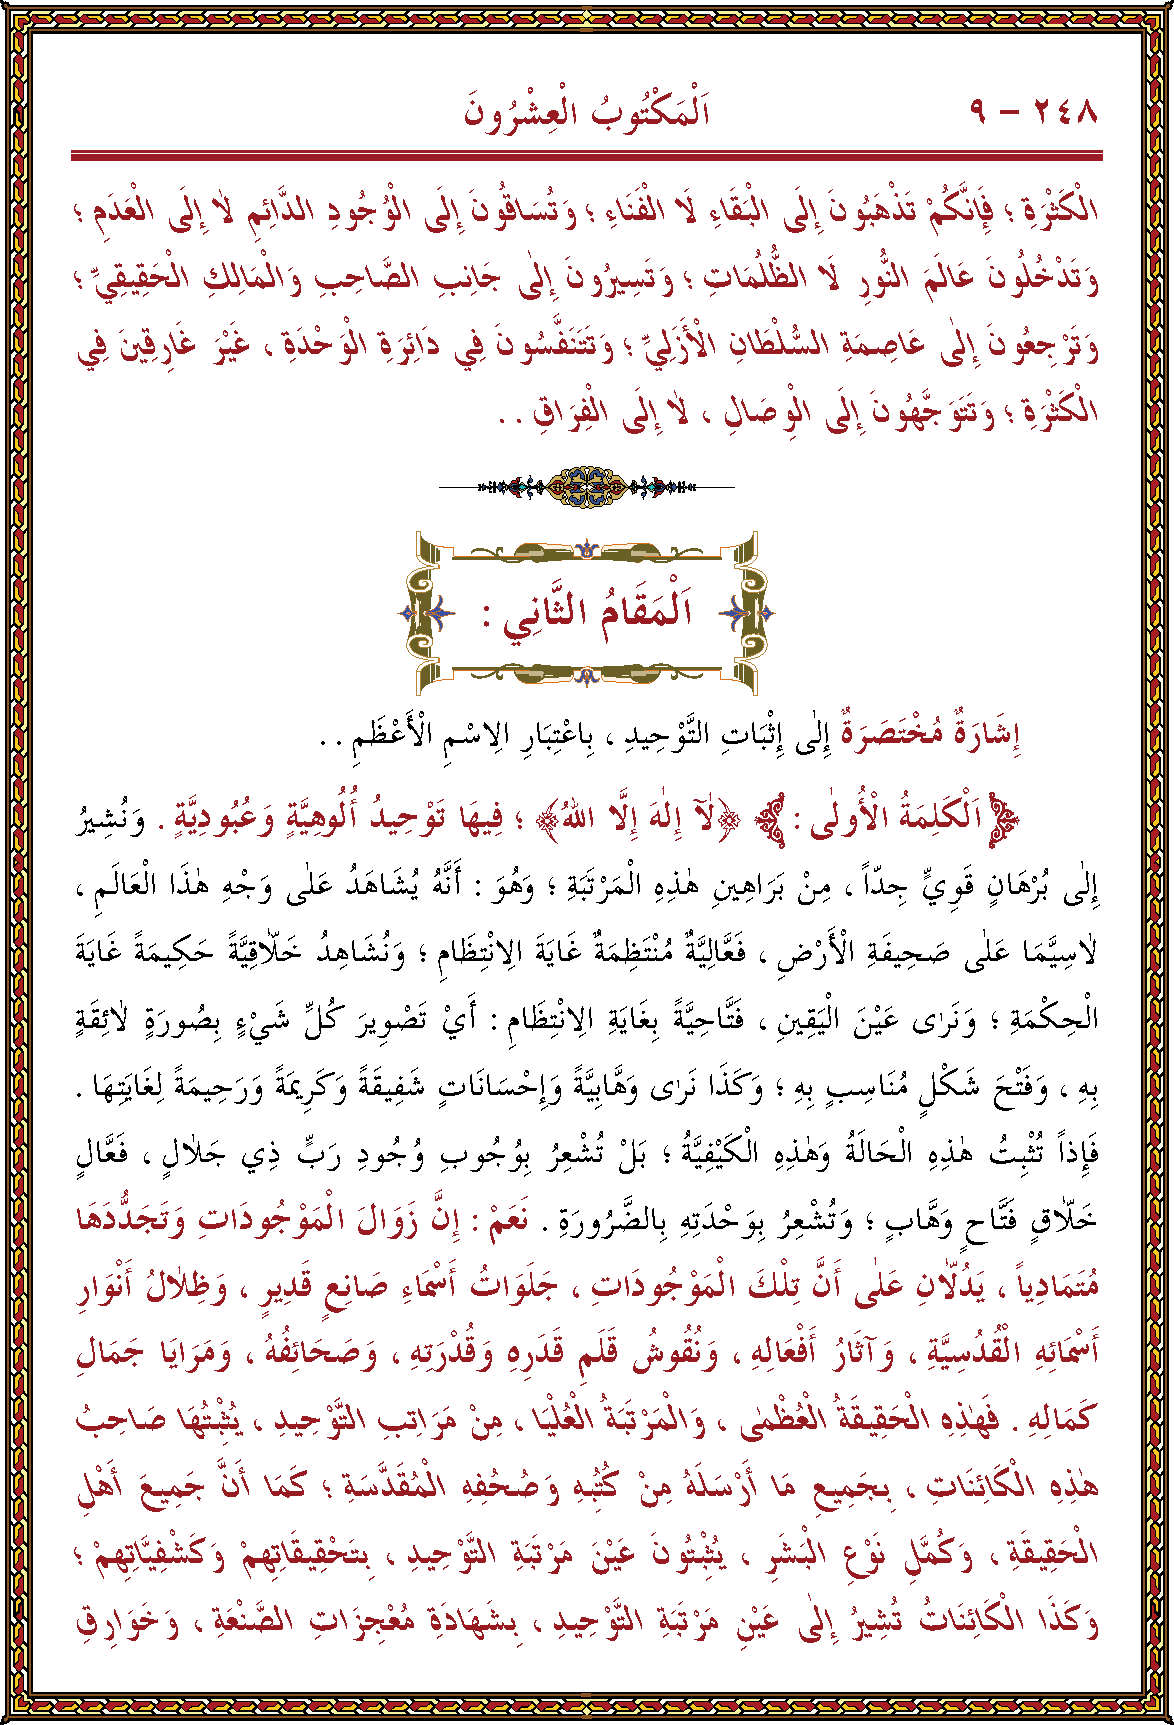 ٢٤٨ - ٩ اَلْمَكْتُوبُ الْعِشْرُونَ
الْكَثْرَةِ ؛ فَإِنَّكُمْ تَذْهَبُونَ إِلَى الْبَقَاءِ لَا الْفَنَاءِ ؛ وَتُسَاقُونَ إِلَى الْوُجُودِ الدَّائِمِ لَا إِلَى الْعَدَمِ ؛
وَتَدْخُلُونَ عَالَمَ النُّورِ لَا الظُّلُمَاتِ ؛ وَتَسِيرُونَ إِلٰى جَانِبِ الصَّاحِبِ وَالْمَالِكِ الْحَقِيقِيِّ ؛
وَتَرْجِعُونَ إِلٰى عَاصِمَةِ السُّلْطَانِ الْأَزَلِيِّ ؛ وَتَتَنَفَّسُونَ فِي دَائِرَةِ الْوَحْدَةِ ، غَيْرَ غَارِقِينَ فِي
الْكَثْرَةِ ؛ وَتَتَوَجَّهُونَ إِلَى الْوِصَالِ ، لَا إِلَى الْفِرَاقِ . .
اَلْمَقَامُ الثَّانِي :
إِشَارَةٌ مُخْتَصَرَةٌ إِلٰى إِثْبَاتِ التَّوْحِيدِ ، بِاعْتِبَارِ الِاسْمِ الْأَعْظَمِ . .
اَلْكَلِمَةُ الْأُولٰى : ﴿لَآ إِلٰهَ إِلَّا اللهُ﴾ ؛ فِيهَا تَوْحِيدُ أُلُوهِيَّةٍ وَعُبُودِيَّةٍ . وَنُشِيرُ
إِلٰى بُرْهَانٍ قَوِيٍّ جِدّاً ، مِنْ بَرَاهِينِ هٰذِهِ الْمَرْتَبَةِ ؛ وَهُوَ : أَنَّهُ يُشَاهَدُ عَلٰى وَجْهِ هٰذَا الْعَالَمِ ،
لَاسِيَّمَا عَلٰى صَحِيفَةِ الْأَرْضِ ، فَعَّالِيَّةٌ مُنْتَظِمَةٌ غَايَةَ الِانْتِظَامِ ؛ وَنُشَاهِدُ خَلَّاقِيَّةً حَكِيمَةً غَايَةَ
الْحِكْمَةِ ؛ وَنَرٰى عَيْنَ الْيَقِينِ ، فَتَّاحِيَّةً بِغَايَةِ الِانْتِظَامِ : أَيْ تَصْوِيرَ كُلِّ شَيْءٍ بِصُورَةٍ لَائِقَةٍ
بِهِ ، وَفَتْحَ شَكْلٍ مُنَاسِبٍ بِهِ ؛ وَكَذَا نَرٰى وَهَّابِيَّةً وَإِحْسَانَاتٍ شَفِيقَةً وَكَرِيمَةً وَرَحِيمَةً لِغَايَتِهَا .
فَإِذاً تُثْبِتُ هٰذِهِ الْحَالَةُ وَهٰذِهِ الْكَيْفِيَّةُ ؛ بَلْ تُشْعِرُ بِوُجُوبِ وُجُودِ رَبٍّ ذِي جَلَالٍ ، فَعَّالٍ
خَلَّاقٍ فَتَّاحٍ وَهَّابٍ ؛ وَتُشْعِرُ بِوَحْدَتِهِ بِالضَّرُورَةِ . نَعَمْ : إِنَّ زَوَالَ الْمَوْجُودَاتِ وَتَجَدُّدَهَا
مُتَمَادِياً ، يَدُلَّانِ عَلٰى أَنَّ تِلْكَ الْمَوْجُودَاتِ ، جَلَوَاتُ أَسْمَاءِ صَانِعٍ قَدِيرٍ ، وَظِلَالُ أَنْوَارِ
أَسْمَائِهِ الْقُدْسِيَّةِ ، وَآثَارُ أَفْعَالِهِ ، وَنُقُوشُ قَلَمِ قَدَرِهِ وَقُدْرَتِهِ ، وَصَحَائِفُهُ ، وَمَرَايَا جَمَالِ
كَمَالِهِ . فَهٰذِهِ الْحَقِيقَةُ الْعُظْمٰى ، وَالْمَرْتَبَةُ الْعُلْيَا ، مِنْ مَرَاتِبِ التَّوْحِيدِ ، يُثْبِتُهَا صَاحِبُ
هٰذِهِ الْكَائِنَاتِ ، بِجَمِيعِ مَا أَرْسَلَهُ مِنْ كُتُبِهِ وَصُحُفِهِ الْمُقَدَّسَةِ ؛ كَمَا أَنَّ جَمِيعَ أَهْلِ
الْحَقِيقَةِ ، وَكُمَّلِ نَوْعِ الْبَشَرِ ، يُثْبِتُونَ عَيْنَ مَرْتَبَةِ التَّوْحِيدِ ، بِتَحْقِيقَاتِهِمْ وَكَشْفِيَّاتِهِمْ ؛
وَكَذَا الْكَائِنَاتُ تُشِيرُ إِلٰى عَيْنِ مَرْتَبَةِ التَّوْحِيدِ ، بِشَهَادَةِ مُعْجِزَاتِ الصَّنْعَةِ ، وَخَوَارِقِ